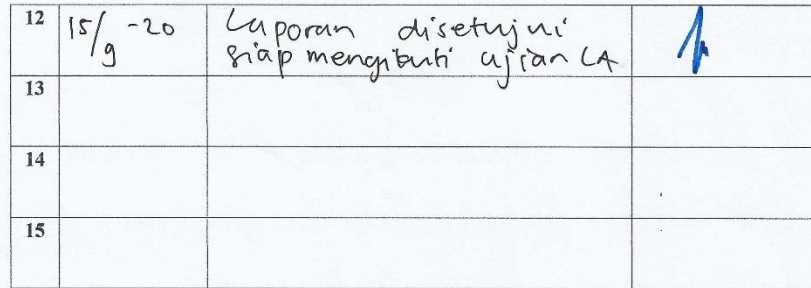 12 15/9-20 Laporan disetujui
siap mengikuti ujian LA
13
14
15